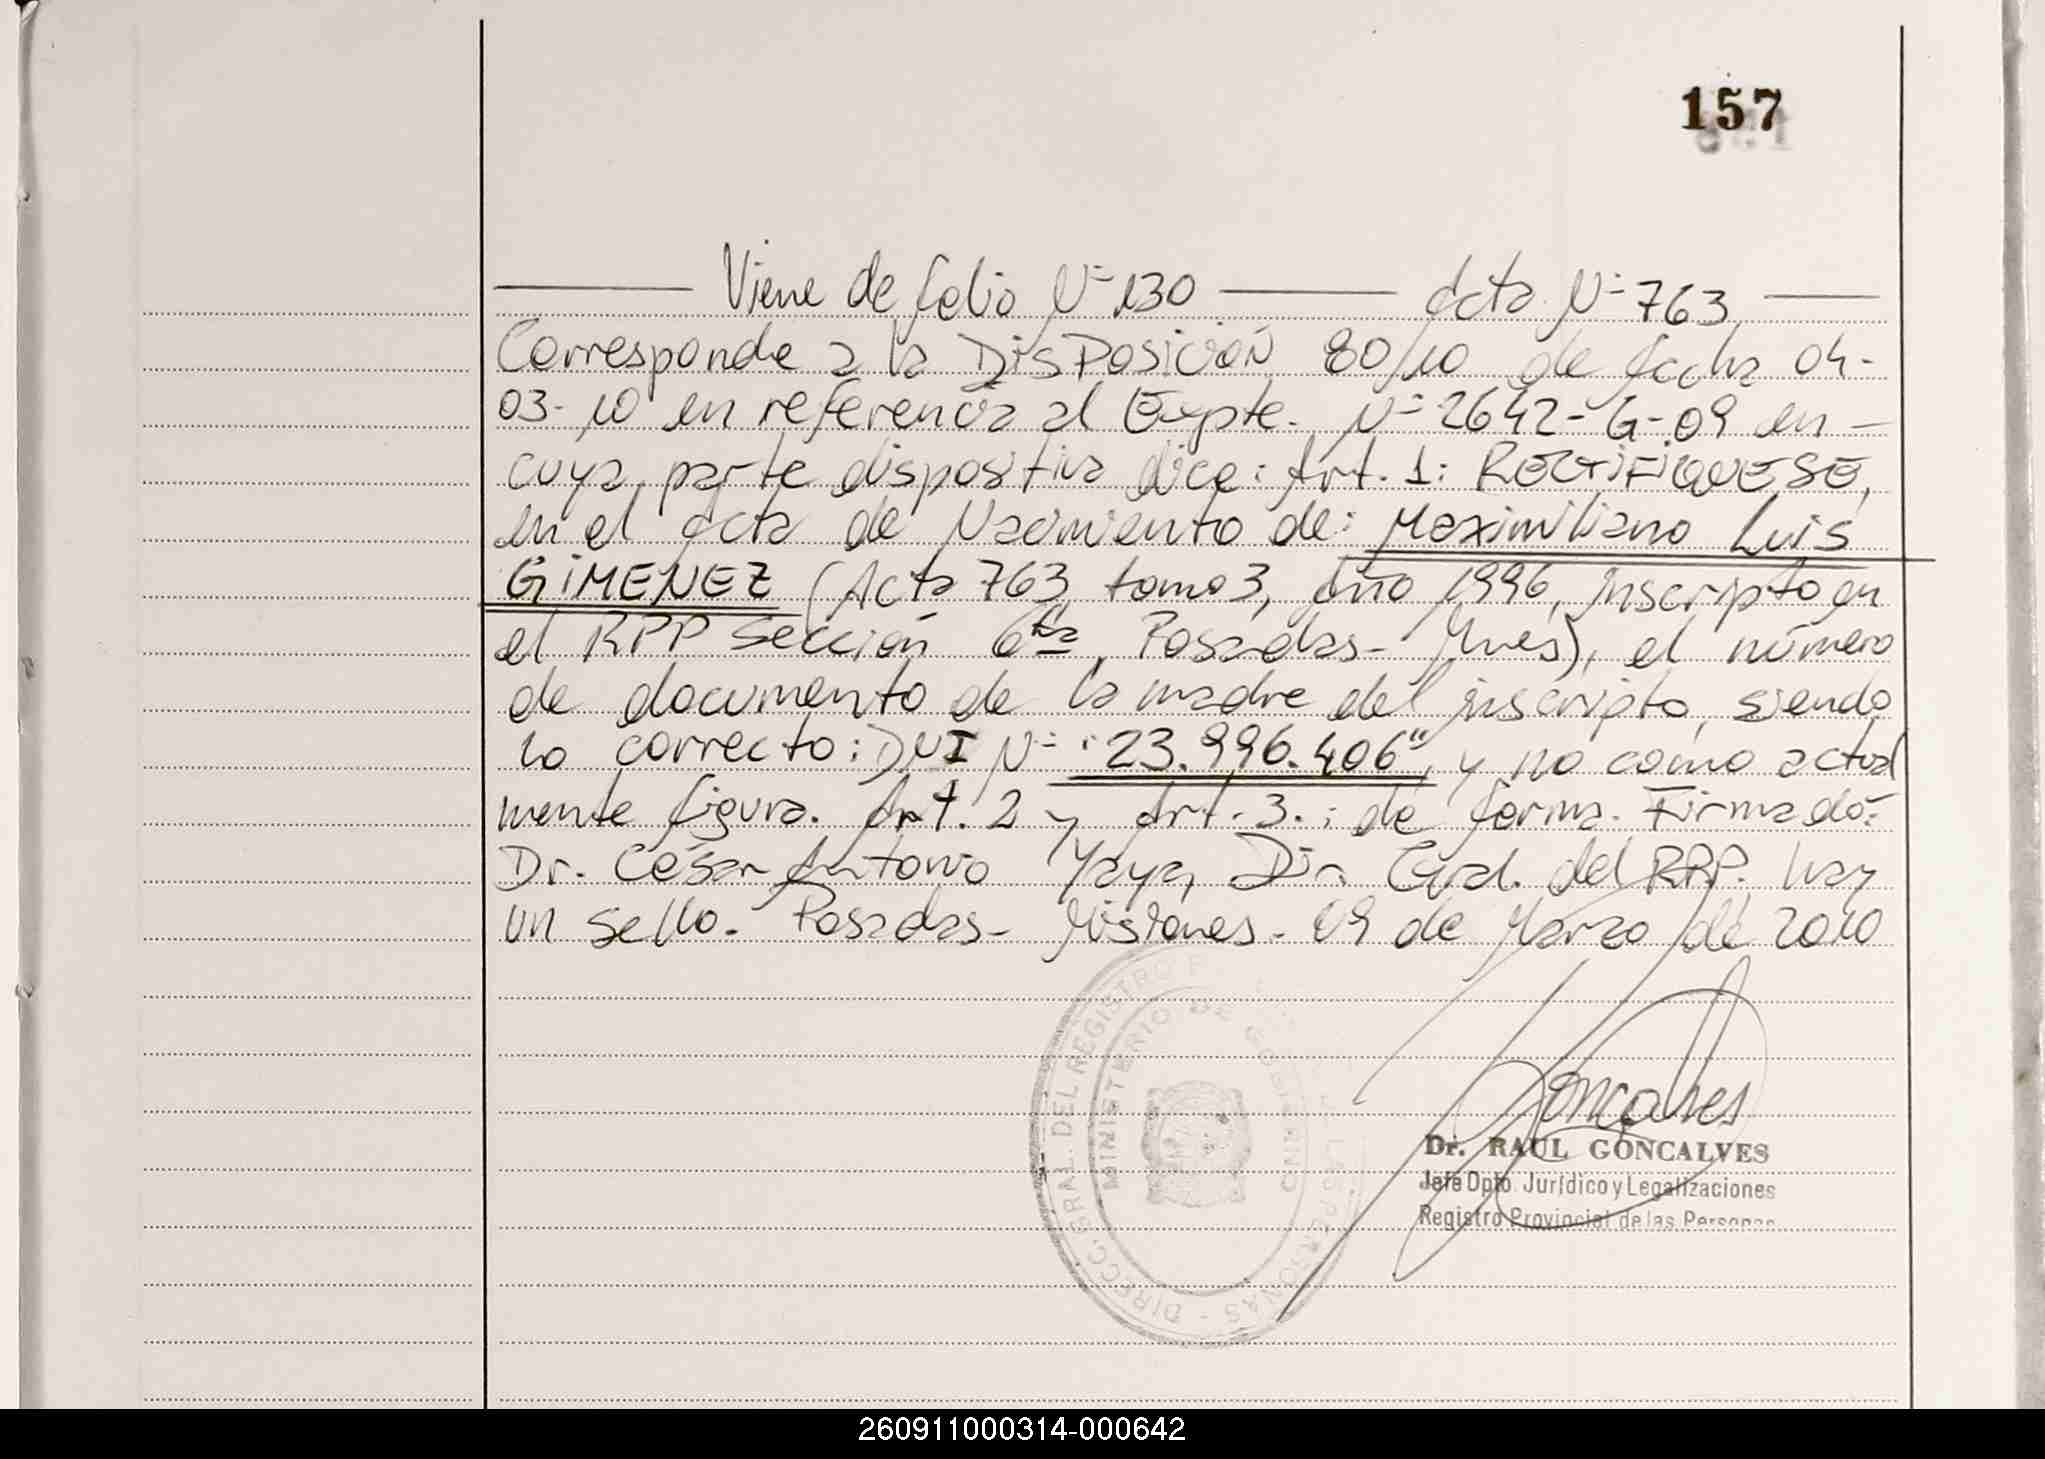 157
Viene de folio Nº 130 Acta Nº 763
Corresponde a la DisPosición 80/10 de fecha 04-
03-10 en referencia al Expte. Nº 2642-G-09 en
cuya parte dispositiva dice: Art. 1: RECTIFIQUESE,
en el Acta de Nacimiento de: Maximiliano Luis
GIMENEZ (Acta 763, tomo 3, Año 1996, inscripto en
el RPP Sección 6ta, Posadas- Mnes), el número
de documento de la madre del inscripto, siendo
lo correcto: DNI Nº "23.996.406", y no como actual
mente figura. Art. 2 y Art. 3.: de forma. Firmado:
Dr. César Antonio Yaya, Dir. Gral. del RPP. hay
un sello. Posadas- Misiones. 09 de Marzo de 2010
DIRECC. GRAL. DEL REGISTRO P LAS PERSONAS -
MINISTERIO DE GOBIERNO
Goncalves
Dr. RAUL GONCALVES
Jefe Dpto. Jurídico y Legalizaciones
Registro Provincial de las Personas
260911000314-000642